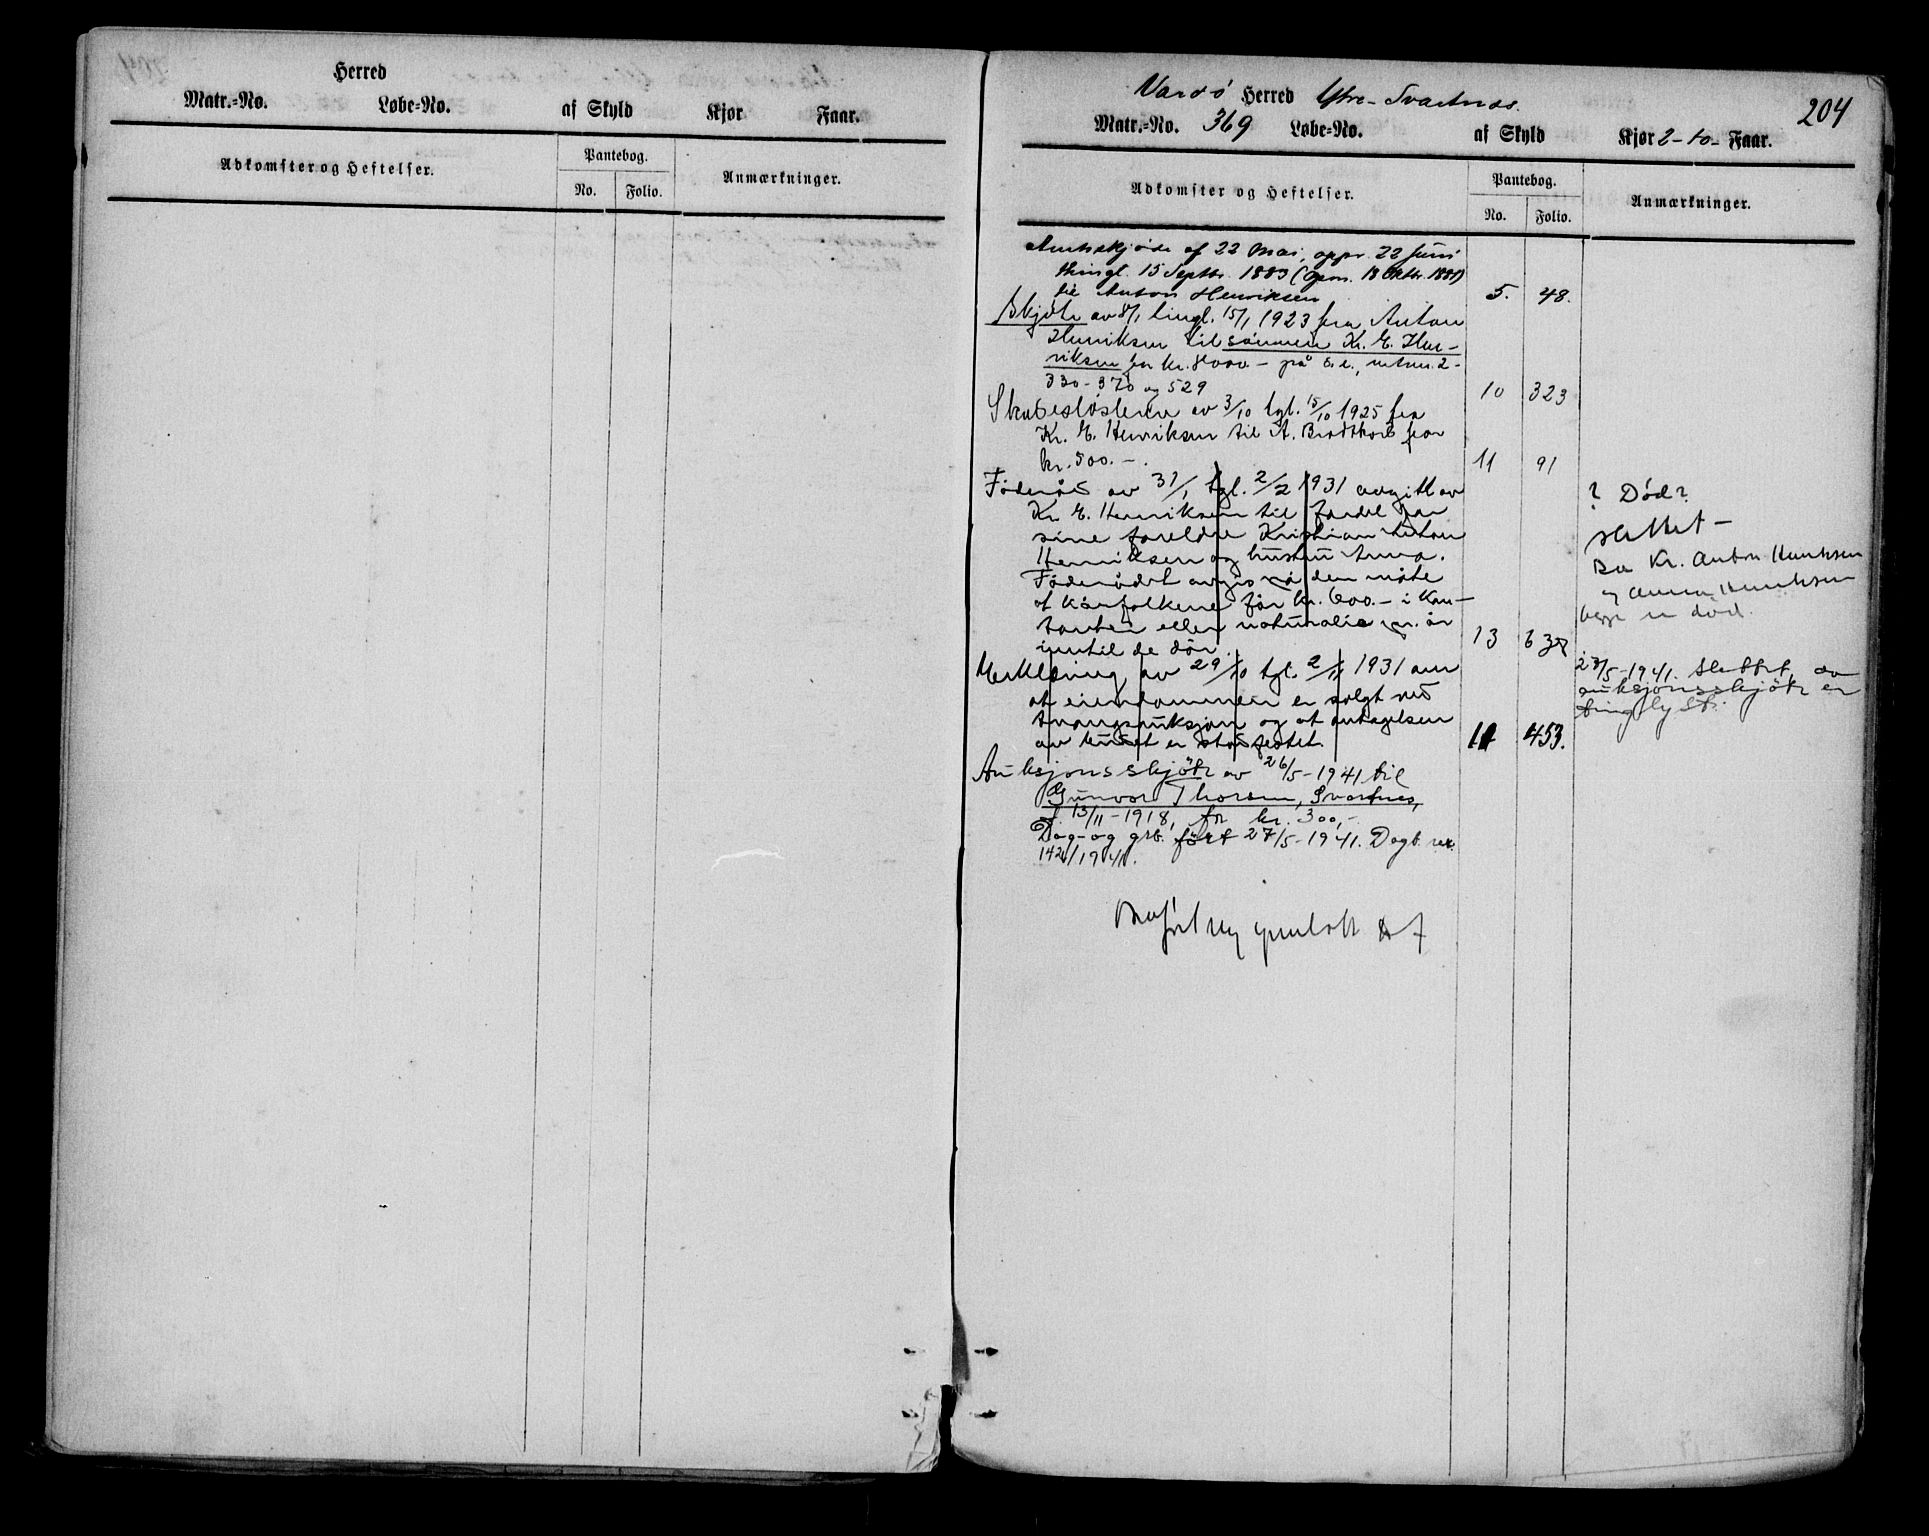 Herred
Matr.=No. Løbe=No. af Skyld Kjør Faar.
Adkomster og Heftelser. Pantebog. Anmærkninger.
No. Folio.
204
Vardø Herred Ytre-Svartnæs.
Matr.=No. 369 Løbe=No. af Skyld Kjør 2-10- Faar.
Adkomster og Heftelser. Pantebog. Anmærkninger.
No. Folio.
Amtsskjøde af 22 Mai, appr. 22 Juni
thingl. 15 Septbr. 1883 (
til Anton Henriksen 5. 48.
Skjøte av 8/1 tingl. 15/1 1923 fra Anton
Henriksen til sønnen Kr. E. Hen-
riksen for kr. 8000.- på d. e., matrnr. 2-
330-370 og 529 10 323
Skadesløsbrev av 3/10 tgl. 15/10 1925 fra
Kr. E. Henriksen til A. Brodtkorb for
kr. 500.- 11 91
Føderåd av 31/1 tgl. 2/2 1931 avgitt av
Kr. E. Henriksen til fordel for
sine foreldre Kristian Anton
Henriksen og hustru Anna.
Føderådet avgis på den måte
at kårfolkene får kr. 600.- i kon-
tanter eller naturalia pr. år
inntil de dør. 13 638
? Død?
slettet-
Da Kr. Anton Henriksen
og Anna Henriksen
begge er død.
Erklæring av 29/10 tgl. 2/11 1931 om
at eiendommen er solgt ved
tvangsauksjon og at antagelsen
av budet er stadfestet. 11 453.
27/5-1941. Slettet, da
auksjonsskjøte er
tinglyst.
Auksjonsskjøte av 26/5-1941 til
Gunvor Thorsen, Svartnes,
f. 13/11-1918, for kr. 300,-.
Dag- og grb. ført 27/5-1941. Dagb. nr.
142/1941.